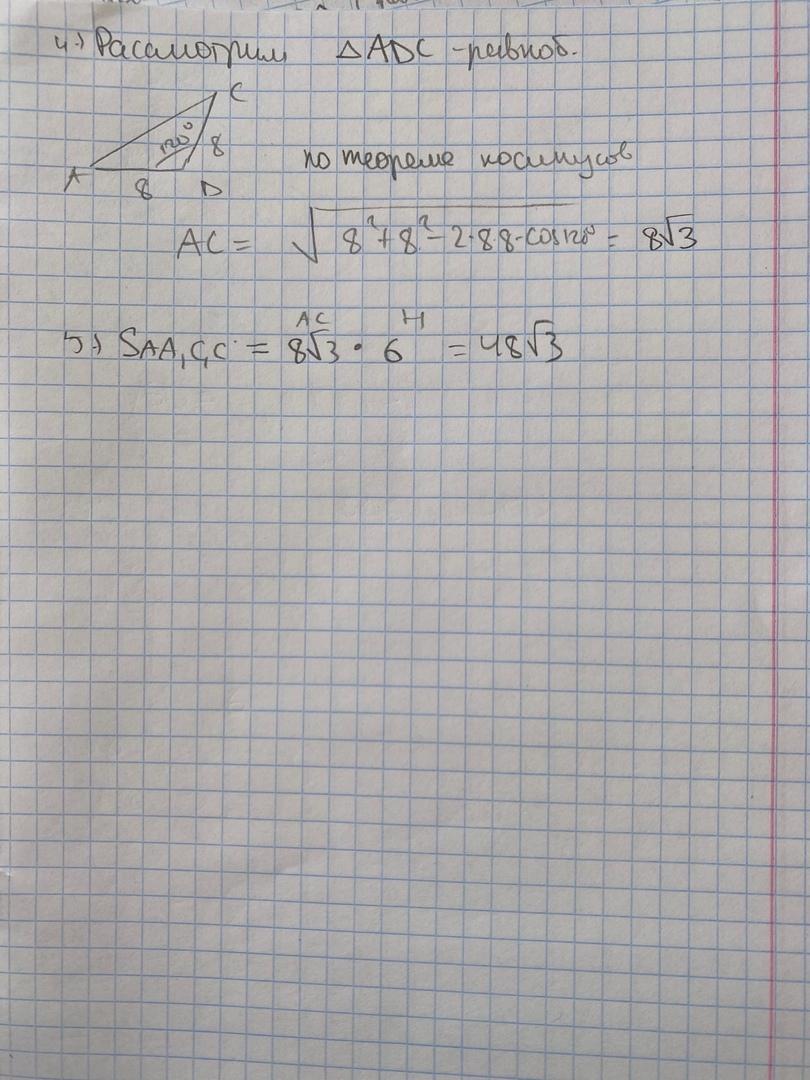 4.) Рассмотрим △ADC - равноб.
C
120°
8
A
8
D
по теореме косинусов
AC = √8²+8²-2·8·8·cos120° = 8√3
AC H
5.) SAA₁C₁C = 8√3 · 6 = 48√3